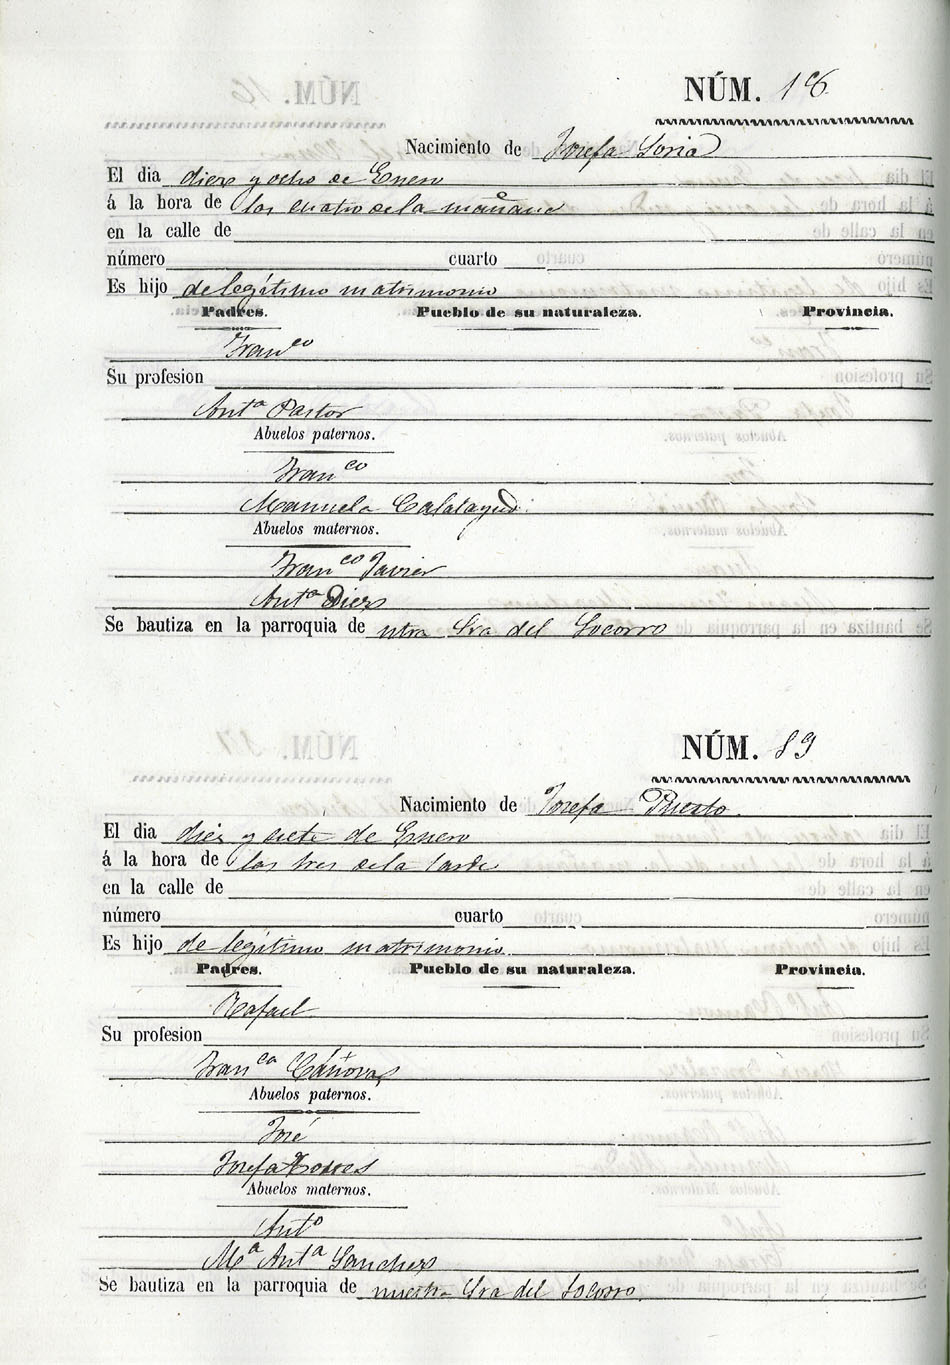 NÚM. 18
Nacimiento de Josefa Soria
El dia diez y ocho de Enero
á la hora de las cuatro de la mañana
en la calle de
número cuarto
Es hijo de legítimo matrimonio
Padres. Pueblo de su naturaleza. Provincia.
Franco
Su profesion
Anta Pastor
Abuelos paternos.
Franco
Manuela Calatayud.
Abuelos maternos.
Franco Javier
Anta Diez
Se bautiza en la parroquia de ntra Sra del Socorro
NÚM. 89
Nacimiento de Josefa Puerto
El dia diez y siete de Enero
á la hora de las tres de la tarde
en la calle de
número cuarto
Es hijo de legítimo matrimonio
Padres. Pueblo de su naturaleza. Provincia.
Rafael
Su profesion
Franca Cánovas
Abuelos paternos.
José
Josefa Torres
Abuelos maternos.
Anto
Ma Anta Sanchez
Se bautiza en la parroquia de nuestra Sra del Socorro